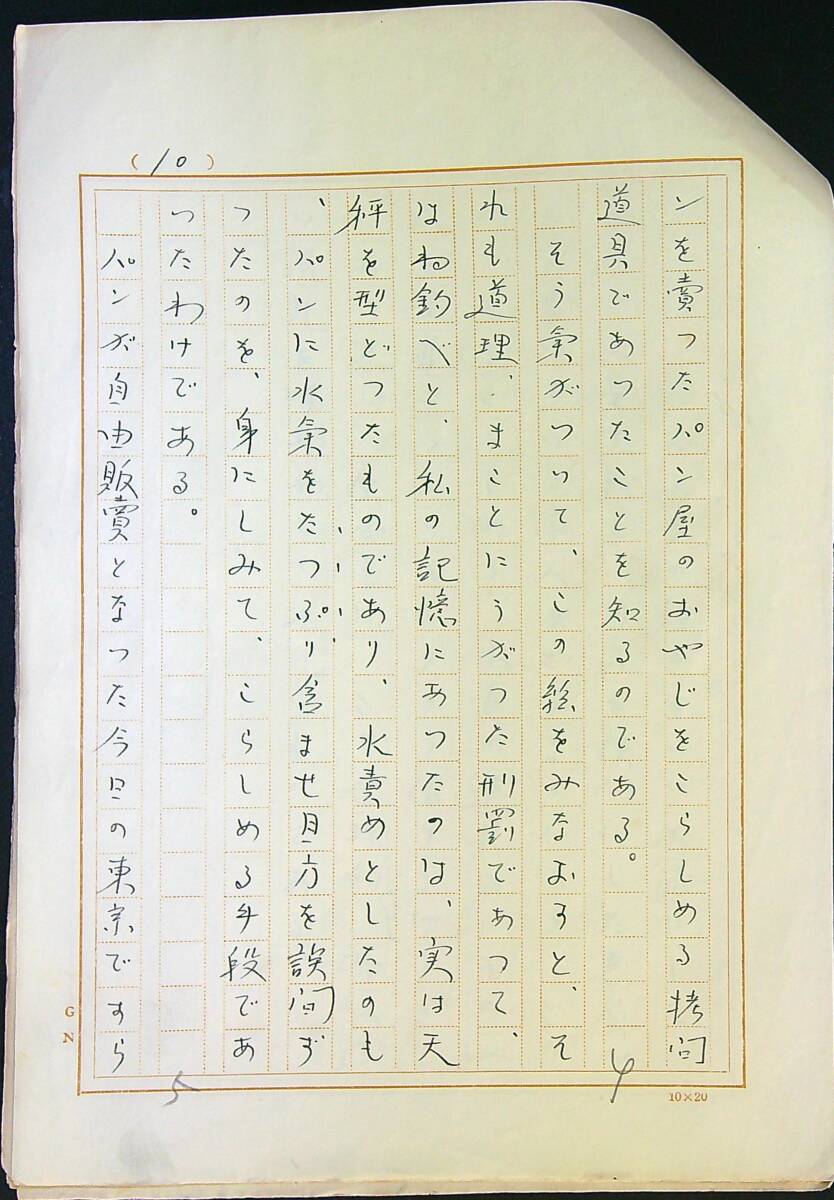 (10)
ンを賣つたパン屋のおやじをこらしめる拷问
道具であつたことを知るのである。
そう氣がついて、この絵をみなおすと、そ
れも道理、まことにうがつた刑罰であつて、
はね釣べと、私の記憶にあつたのは、実は天
秤を型どつたものであり、水責めとしたのも
、パンに水氣をたつぷり含ませ目方を誤间ず
つたのを、身にしみて、こらしめる手段であ
つたわけである。
パンが自由販賣となつた今日の東京ですら
4
5
G N
10×20